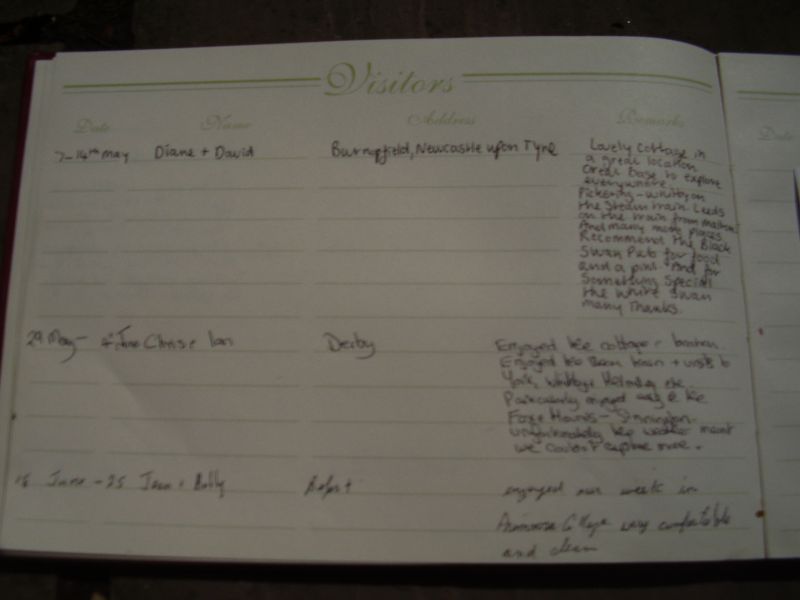 Visitors
Date Name Address Remarks Date
7-14th May Diane + David Burnopfield, Newcastle upon Tyne Lovely Cottage in
a great location
Great Base to explore
everywhere.
Pickering - Whitby on
the Steam train. Leeds
on the train from Malton
And many more places.
Recommend the Black
Swan Pub for food
and a pint. And for
Something Special
the White Swan
many Thanks.
29 May - 4th June Chris + Ian Derby Enjoyed the cottage + location.
Enjoyed the Steam train + visits to
York, Whitby, Helmsley etc.
Particularly enjoyed meal @ the
Fox & Hounds - Sinnington.
Unfortunately the weather meant
we couldn't explore more.
18 June - 25 Jean + Billy Belfast enjoyed our week in
Primrose Cottage very comfortable
and clean